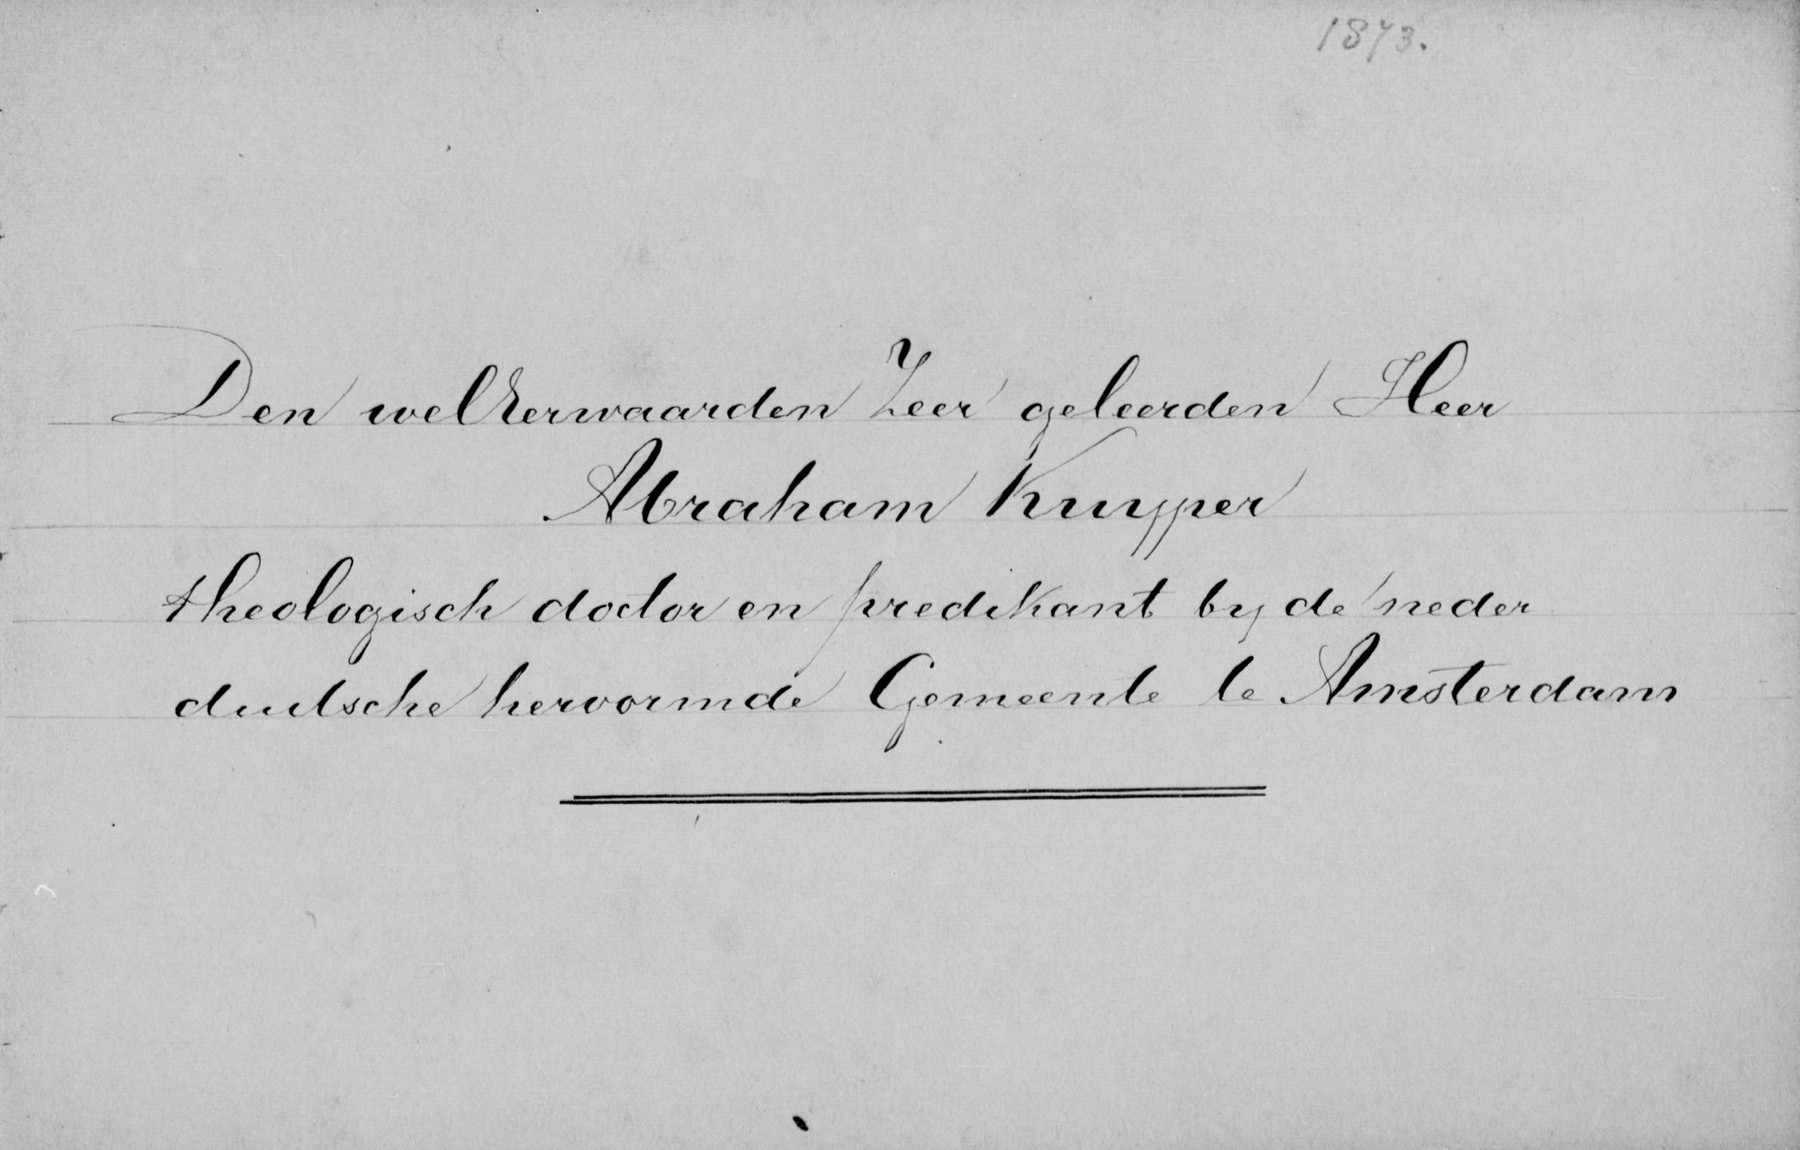 1873.
Den welEerwaarden Zeer geleerden Heer
Abraham Kuyper
theologisch doctor en predikant by de neder
duitsche hervormde Gemeente te Amsterdam